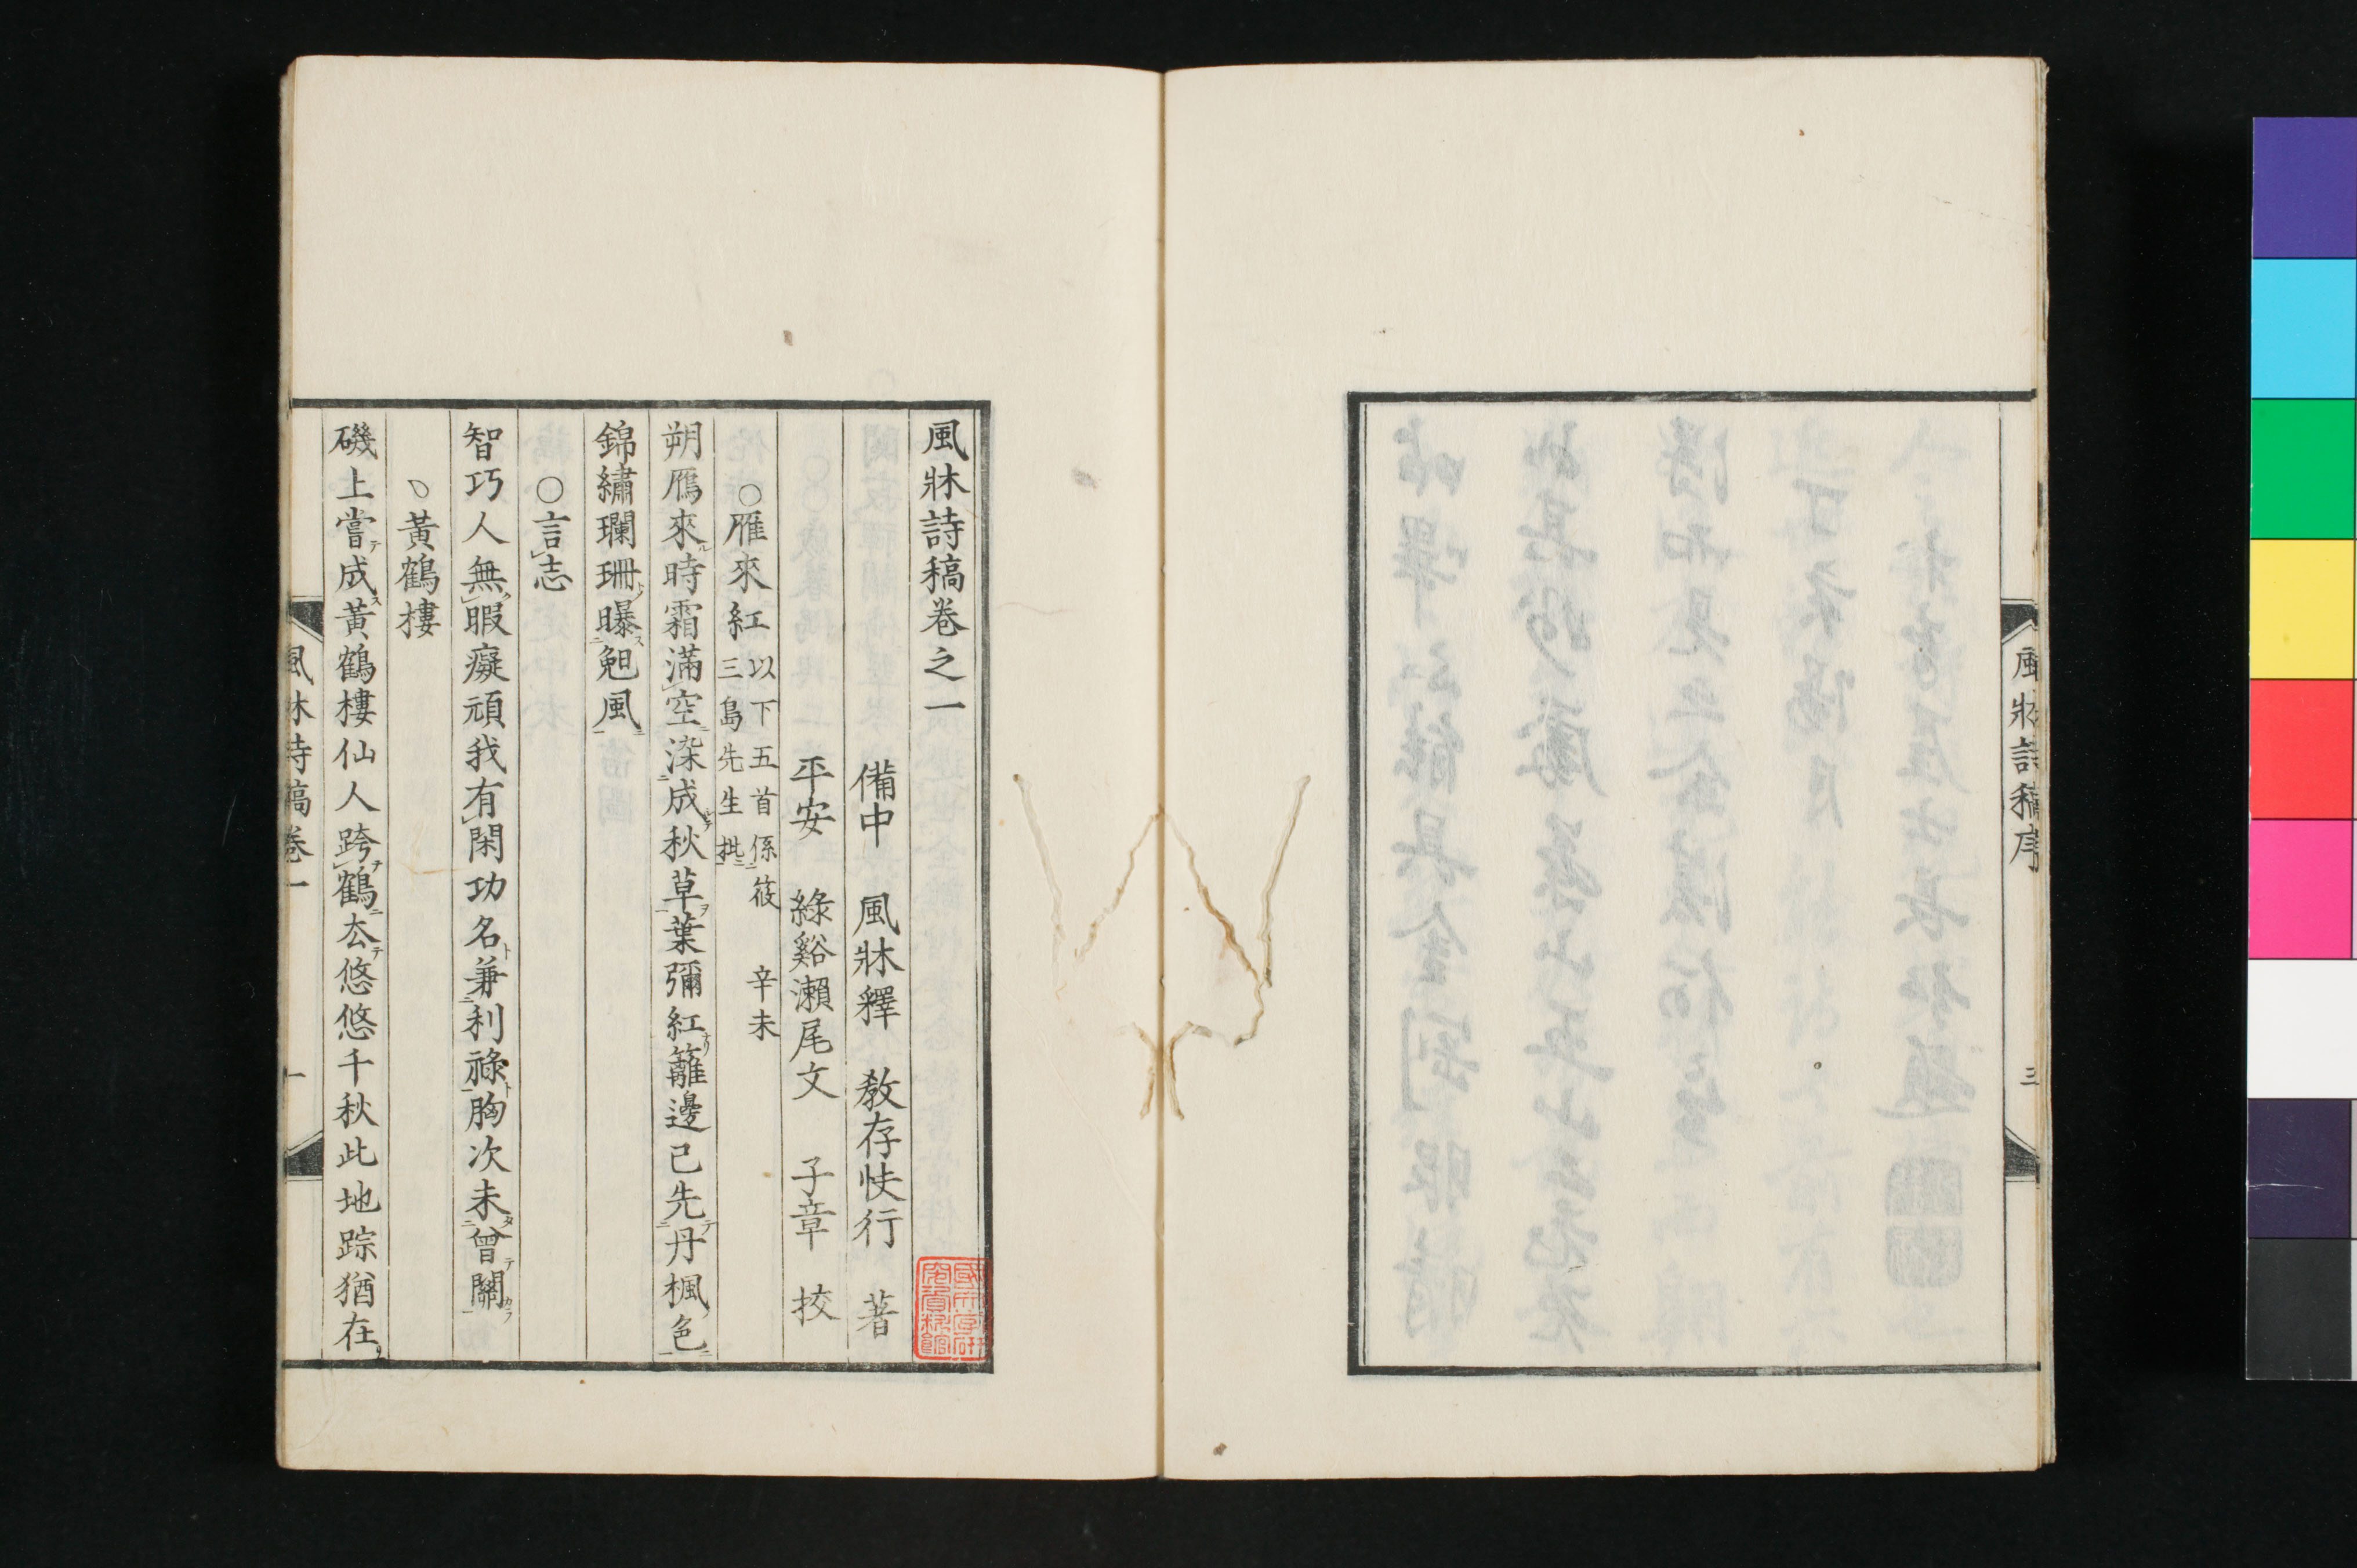 風牀詩稿序
三
風牀詩稿卷之一
備中 風牀釋 敎存快行 著
平安 綠谿瀨尾文 子章 挍
○雁來紅 以下五首係筱 辛未
三島先生批
朔鴈來ル時霜滿空染成秋草ヲ葉彌紅籬邊已先テ丹楓色ニ
錦繡瓓珊曝ス風ニ
○言志
智巧人無暇癡頑我有閑功名ト兼利祿ト胸次未タ曾テ關
○黃鶴樓
磯上嘗テ成ス黃鶴樓仙人跨鶴ニ厺テ悠悠千秋此地踪猶在
風牀詩稿卷一
一